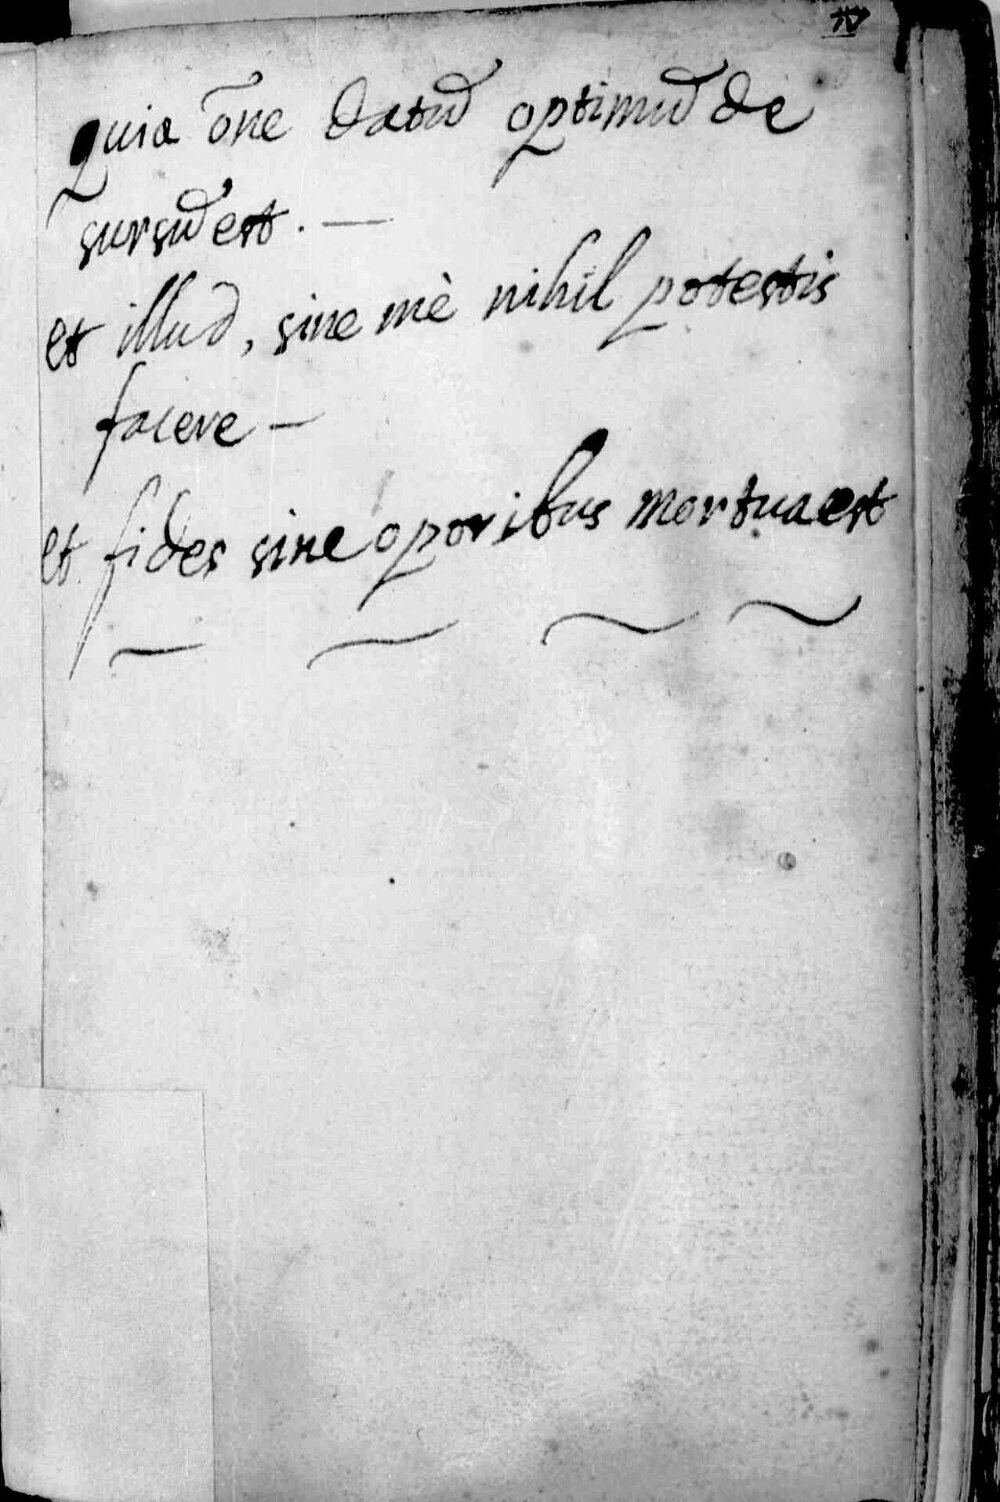 quia õne datũ optimũ de
sursũ est. —
et illud, sine mè nihil potestis
facere —
et fides sine oporibus mortua est